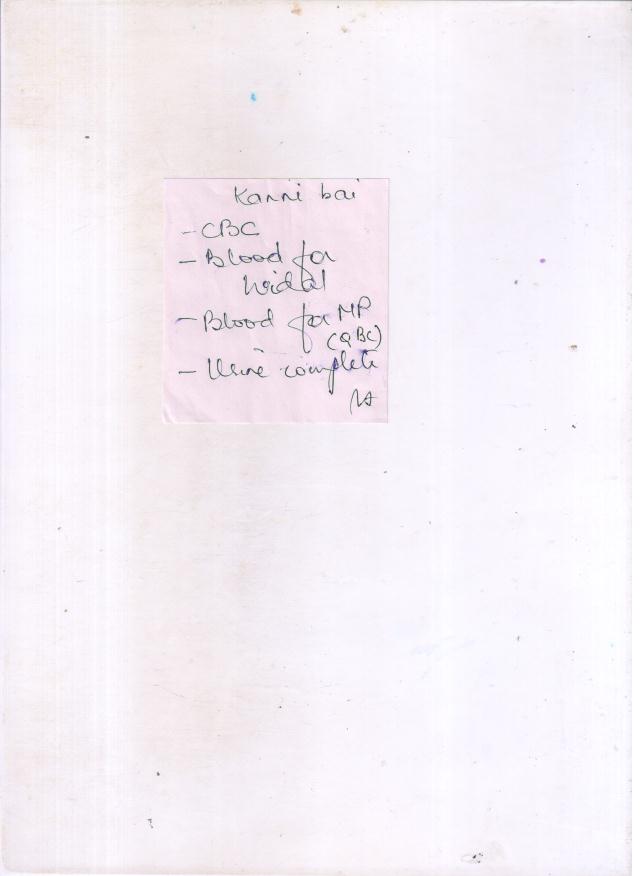 Kanni bai
- CBC
- Blood for
widal
- Blood for MP
(QBC)
- Urine complete